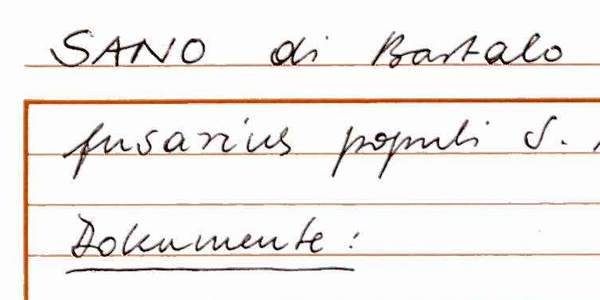 SANO di Bartalo
fusarius populi S.
Dokumente: